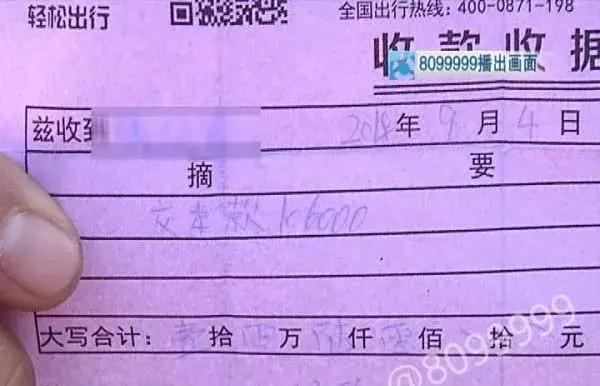 轻松出行 全国出行热线：400-0871-198
收款收据
8099999播出画面
兹收到 2018年9月4日
摘要
交车款 106000
大写合计：壹拾 万 仟零佰 拾 元
@8099999